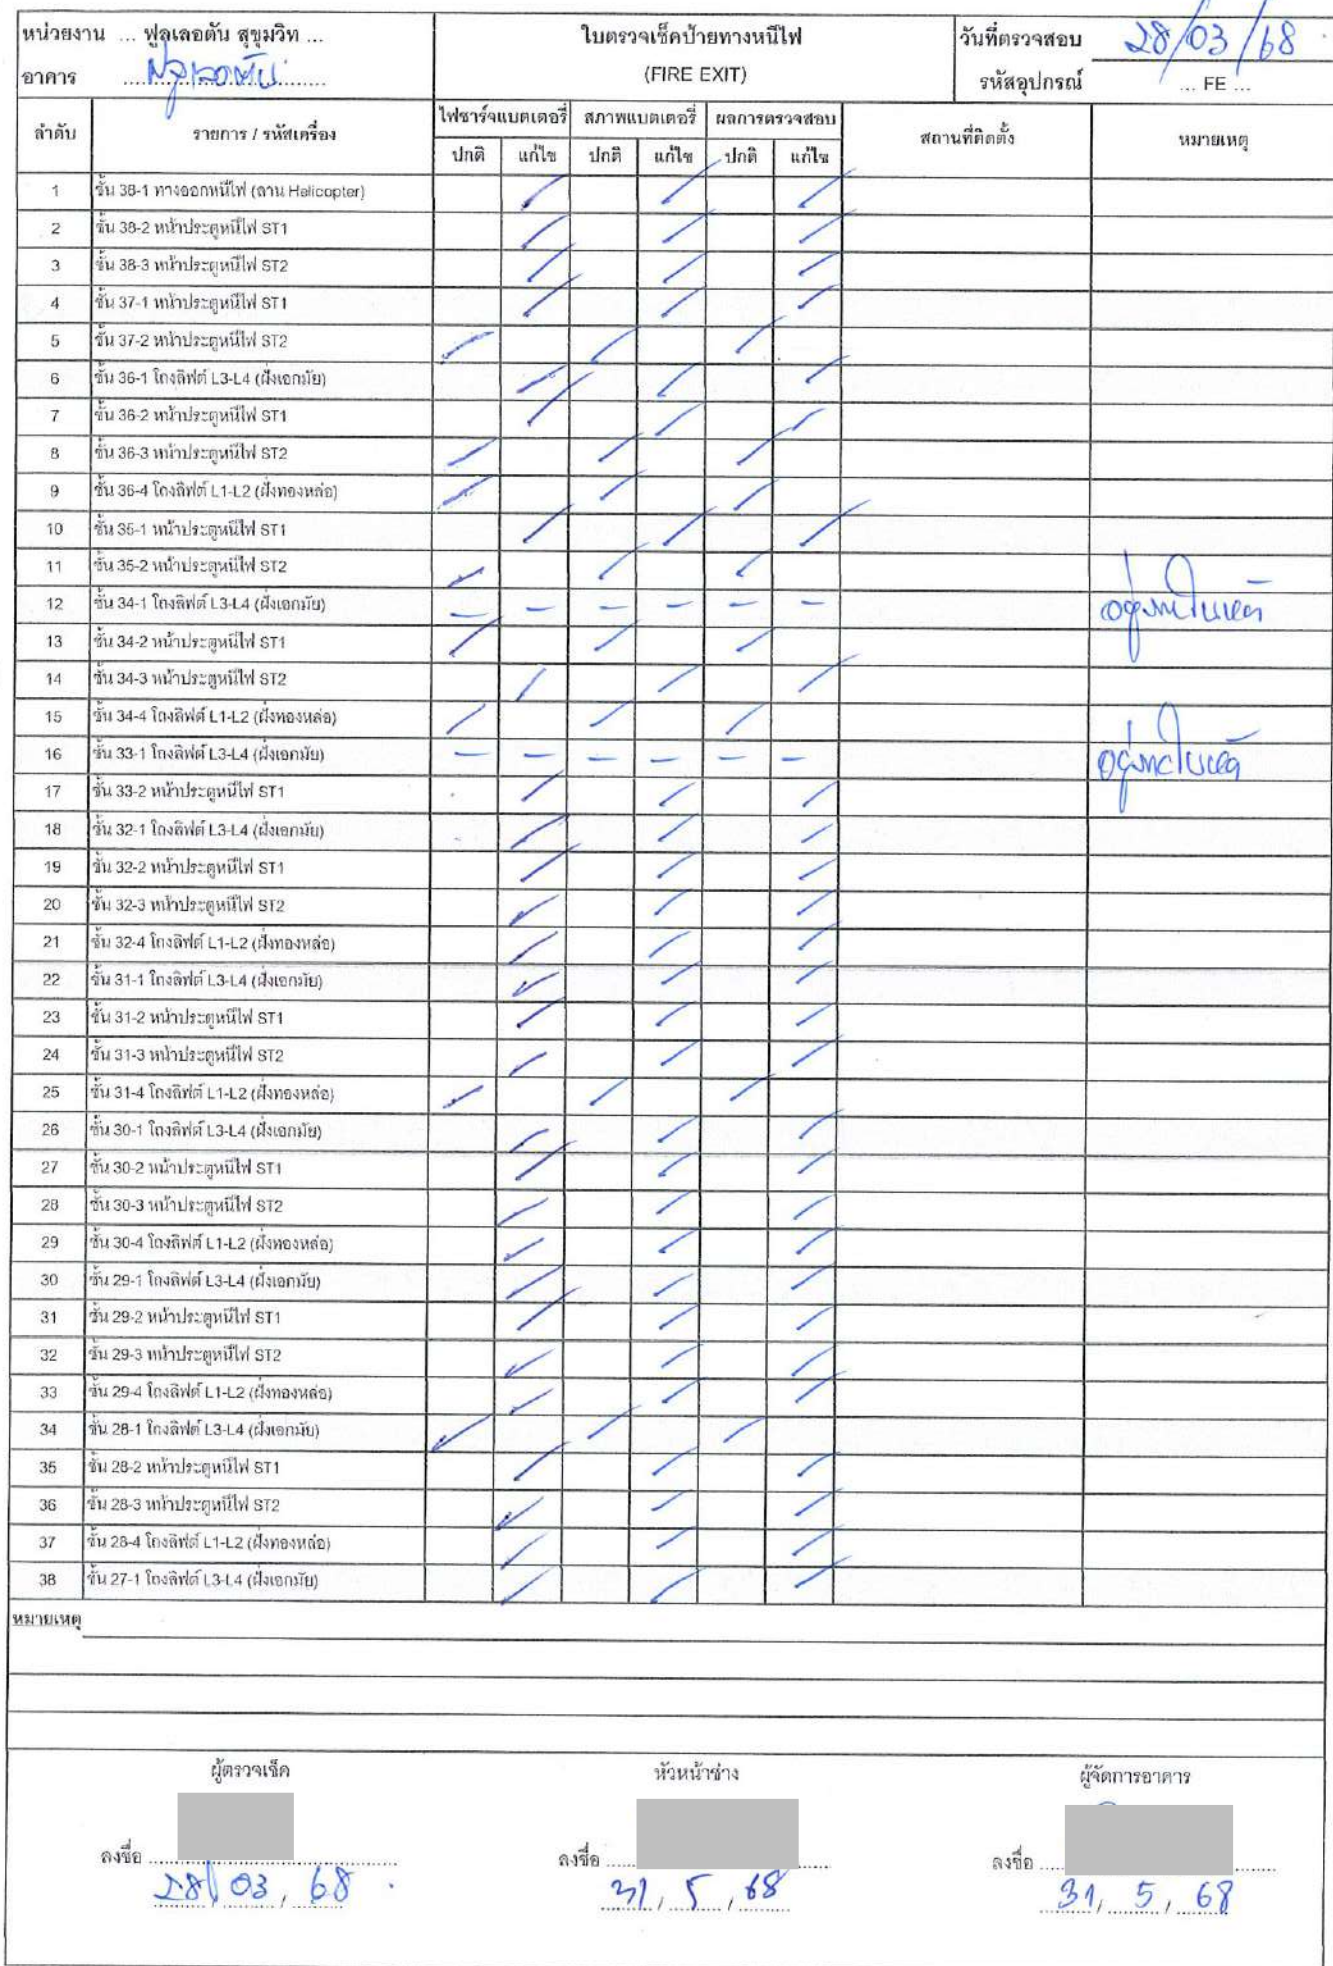 หน่วยงาน ... ฟูลเลอตัน สุขุมวิท ...
ใบตรวจเช็คป้ายทางหนีไฟ
วันที่ตรวจสอบ 28/03/68
อาคาร ฟูลเลอตัน
(FIRE EXIT)
รหัสอุปกรณ์ ... FE ...
ลำดับ รายการ / รหัสเครื่อง ไฟชาร์จแบตเตอรี่ สภาพแบตเตอรี่ ผลการตรวจสอบ สถานที่ติดตั้ง หมายเหตุ
ปกติ แก้ไข ปกติ แก้ไข ปกติ แก้ไข
1 ชั้น 38-1 ทางออกหนีไฟ (ลาน Helicopter)
2 ชั้น 38-2 หน้าประตูหนีไฟ ST1
3 ชั้น 38-3 หน้าประตูหนีไฟ ST2
4 ชั้น 37-1 หน้าประตูหนีไฟ ST1
5 ชั้น 37-2 หน้าประตูหนีไฟ ST2
6 ชั้น 36-1 โถงลิฟต์ L3-L4 (ฝั่งเอกมัย)
7 ชั้น 36-2 หน้าประตูหนีไฟ ST1
8 ชั้น 36-3 หน้าประตูหนีไฟ ST2
9 ชั้น 36-4 โถงลิฟต์ L1-L2 (ฝั่งทองหล่อ)
10 ชั้น 35-1 หน้าประตูหนีไฟ ST1
11 ชั้น 35-2 หน้าประตูหนีไฟ ST2
12 ชั้น 34-1 โถงลิฟต์ L3-L4 (ฝั่งเอกมัย) – – – – – –
13 ชั้น 34-2 หน้าประตูหนีไฟ ST1
14 ชั้น 34-3 หน้าประตูหนีไฟ ST2
15 ชั้น 34-4 โถงลิฟต์ L1-L2 (ฝั่งทองหล่อ)
16 ชั้น 33-1 โถงลิฟต์ L3-L4 (ฝั่งเอกมัย) – – – – – –
17 ชั้น 33-2 หน้าประตูหนีไฟ ST1
18 ชั้น 32-1 โถงลิฟต์ L3-L4 (ฝั่งเอกมัย)
19 ชั้น 32-2 หน้าประตูหนีไฟ ST1
20 ชั้น 32-3 หน้าประตูหนีไฟ ST2
21 ชั้น 32-4 โถงลิฟต์ L1-L2 (ฝั่งทองหล่อ)
22 ชั้น 31-1 โถงลิฟต์ L3-L4 (ฝั่งเอกมัย)
23 ชั้น 31-2 หน้าประตูหนีไฟ ST1
24 ชั้น 31-3 หน้าประตูหนีไฟ ST2
25 ชั้น 31-4 โถงลิฟต์ L1-L2 (ฝั่งทองหล่อ)
26 ชั้น 30-1 โถงลิฟต์ L3-L4 (ฝั่งเอกมัย)
27 ชั้น 30-2 หน้าประตูหนีไฟ ST1
28 ชั้น 30-3 หน้าประตูหนีไฟ ST2
29 ชั้น 30-4 โถงลิฟต์ L1-L2 (ฝั่งทองหล่อ)
30 ชั้น 29-1 โถงลิฟต์ L3-L4 (ฝั่งเอกมัย)
31 ชั้น 29-2 หน้าประตูหนีไฟ ST1
32 ชั้น 29-3 หน้าประตูหนีไฟ ST2
33 ชั้น 29-4 โถงลิฟต์ L1-L2 (ฝั่งทองหล่อ)
34 ชั้น 28-1 โถงลิฟต์ L3-L4 (ฝั่งเอกมัย)
35 ชั้น 28-2 หน้าประตูหนีไฟ ST1
36 ชั้น 28-3 หน้าประตูหนีไฟ ST2
37 ชั้น 28-4 โถงลิฟต์ L1-L2 (ฝั่งทองหล่อ)
38 ชั้น 27-1 โถงลิฟต์ L3-L4 (ฝั่งเอกมัย)
หมายเหตุ
ผู้ตรวจเช็ค หัวหน้าช่าง ผู้จัดการอาคาร
ลงชื่อ ลงชื่อ ลงชื่อ
28/03/68 31/5/68 31/5/68